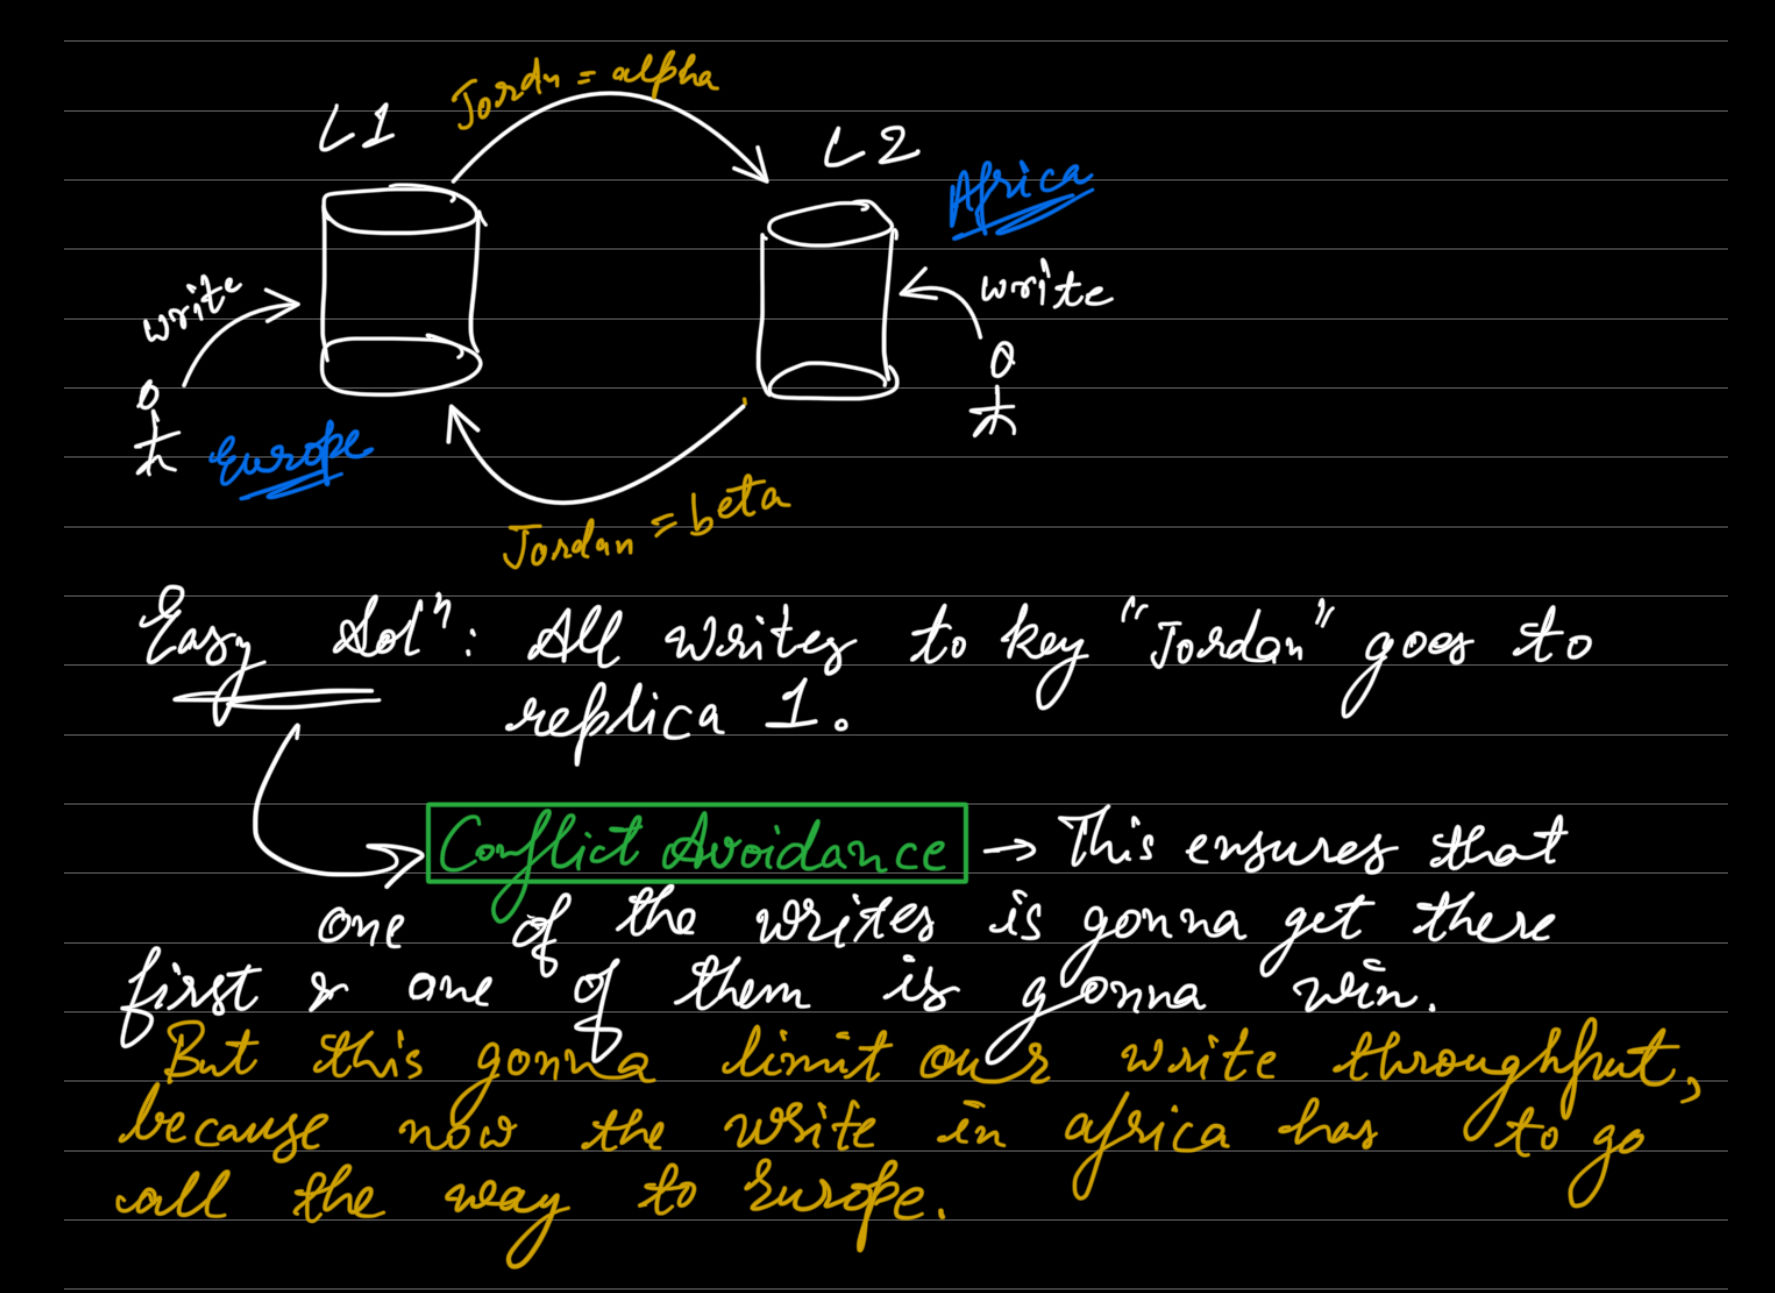 Jordn = alpha
L1
L2
Africa
write
write
Europe
Jordan = beta
Easy Solⁿ: All writes to key "Jordan" goes to
replica 1.
Conflict Avoidance → This ensures that
one of the writes is gonna get there
first & one of them is gonna win.
But this gonna limit our write throughput,
because now the write in africa has to go
all the way to Europe.